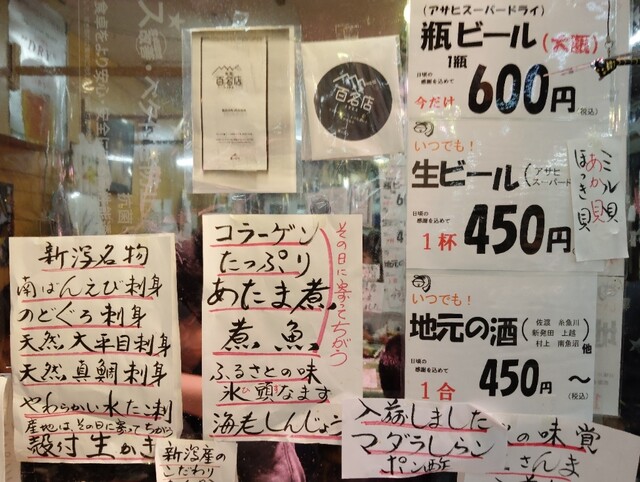 百名店
百名店
(アサヒスーパードライ)
瓶ビール(大瓶)
1瓶
日頃の
感謝を込めて
今だけ
600円
(税込)
いつでも!
生ビール(アサヒ
スーパード
日頃の
感謝を込めて
1杯
450円
ミル貝
あか貝
ほっき貝
いつでも!
地元の酒(佐渡 糸魚川
新発田 上越
村上 南魚沼)他
日頃の
感謝を込めて
1合
450円~
(税込)
新潟名物
南ばんえび刺身
のどぐろ刺身
天然大平目刺身
天然真鯛刺身
やわらかい水たこ刺
産地は、その日に寄ってちがう
殻付生かき
新潟産の
こだわり
コラーゲン
たっぷり
あたま煮。
煮魚。
その日に寄ってちがう
ふるさとの味
氷頭なます
海老しんじょう
入荷しました
マダラしらこ
ポン酢
の味覚
さんま